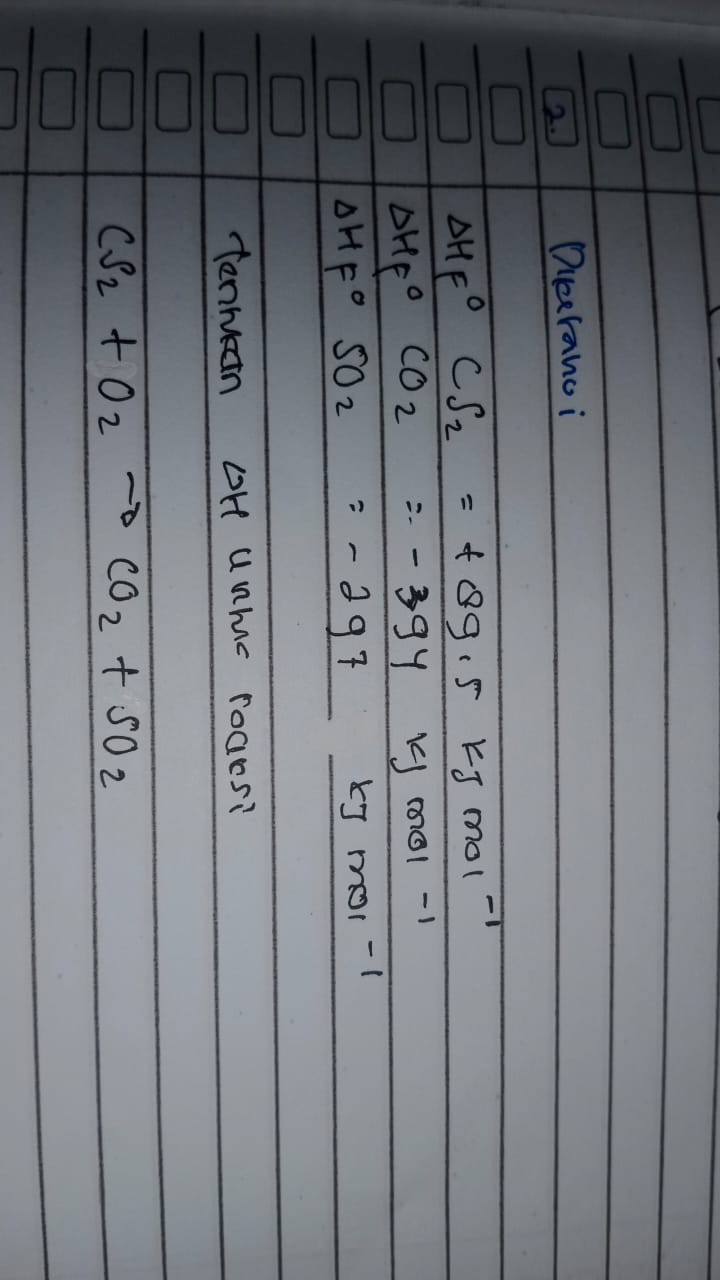 2. Diketahui
ΔHF° CS2 = +89,5 kJ mol -1
ΔHF° CO2 = -394 kJ mol -1
ΔHF° SO2 = -297 kJ mol -1
Tentukan ΔH untuk reaksi
CS2 + O2 → CO2 + SO2